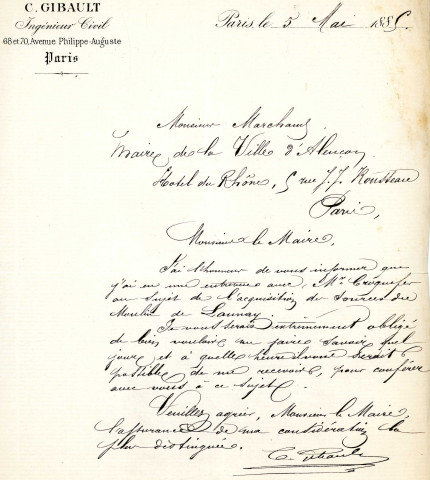 C. GIBAULT
Ingénieur Civil
68 et 70, Avenue Philippe-Auguste
Paris
Paris, le 5 Mai 188
Monsieur Marchand
Maire de la Ville d'Alençon
Hotel du Rhône, 5 rue J. J. Rousseau
Paris,
Monsieur le Maire,
J'ai l'honneur de vous informer que
j'ai eu une entrevue avec Mr
au sujet de l'acquisition des sources du
Moulin de Launay.
Je vous serais extrêmement obligé
de bien vouloir me faire savoir quel
jour et à quelle heure il vous serait
possible de me recevoir, pour conférer
avec vous à ce sujet.
Veuillez agréer, Monsieur le Maire,
l'assurance de ma considération la
plus distinguée.
C. Gibault